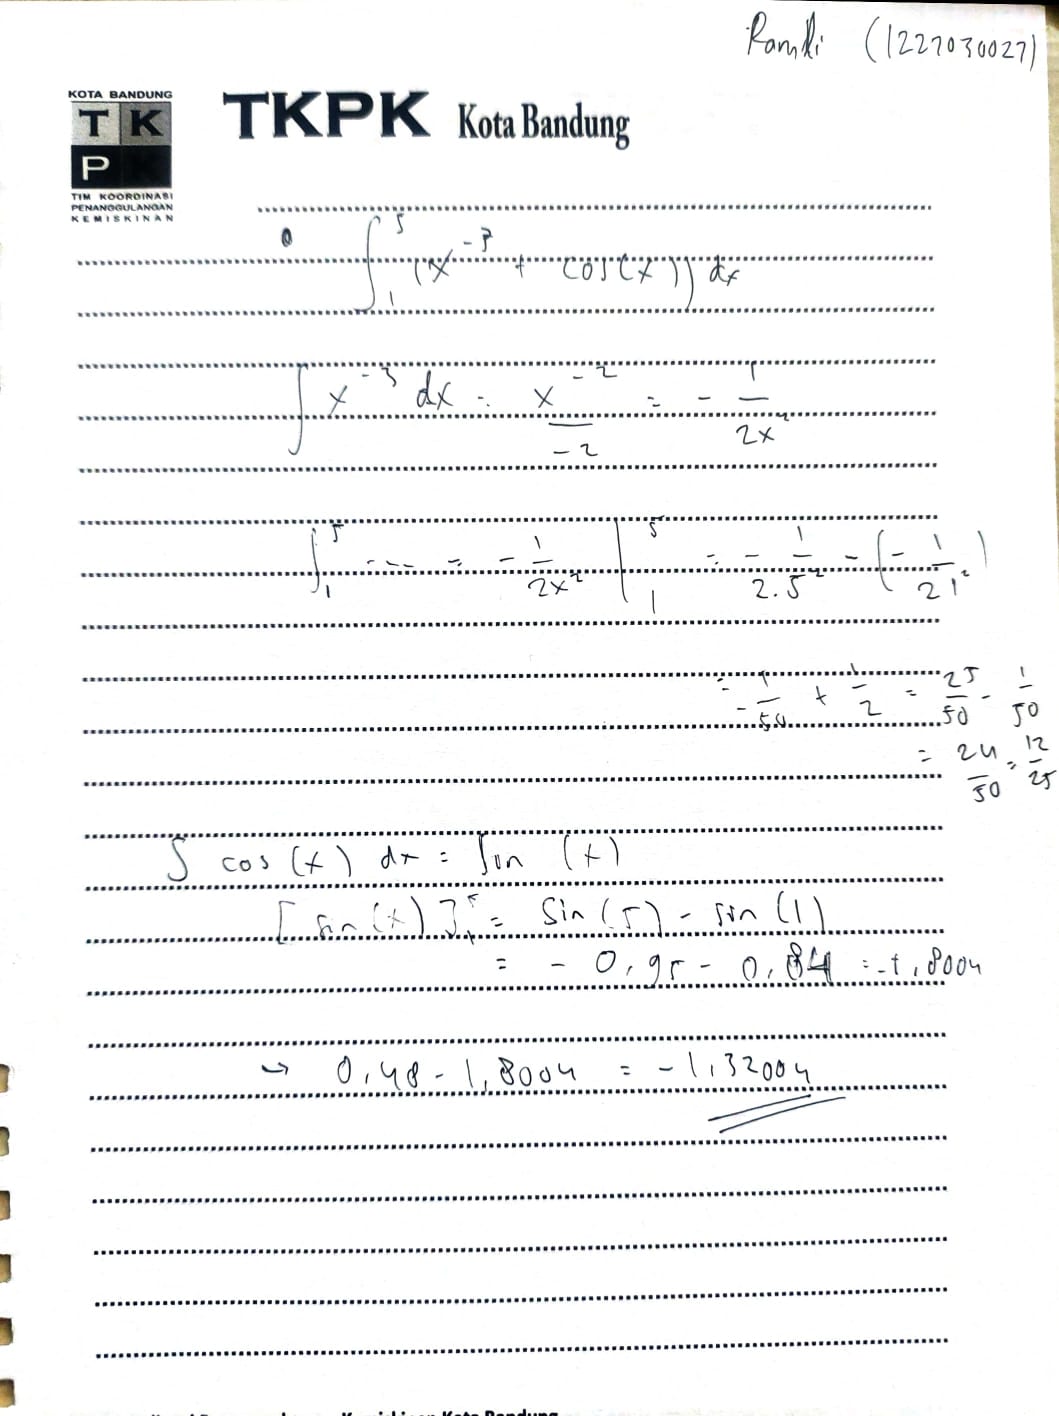 Ramdi (1227030027)
KOTA BANDUNG
T K
P K
TIM KOORDINASI
PENANGGULANGAN
KEMISKINAN
TKPK Kota Bandung
∫₁⁵ (x⁻³ + cos(x)) dx
∫ x⁻³ dx = x⁻²/-2 = - 1/2x²
∫₁⁵ ---- = - 1/2x² |₁⁵ = - 1/2.5² - (- 1/2 1²)
= - 1/50 + 1/2 = 25/50 - 1/50
= 24/50 = 12/25
∫ cos (x) dx = sin (x)
[sin(x)]₁⁵ = sin(5) - sin(1)
= - 0,95 - 0,84 = -1,8004
↪ 0,48 - 1,8004 = -1,32004
Kota Bandung